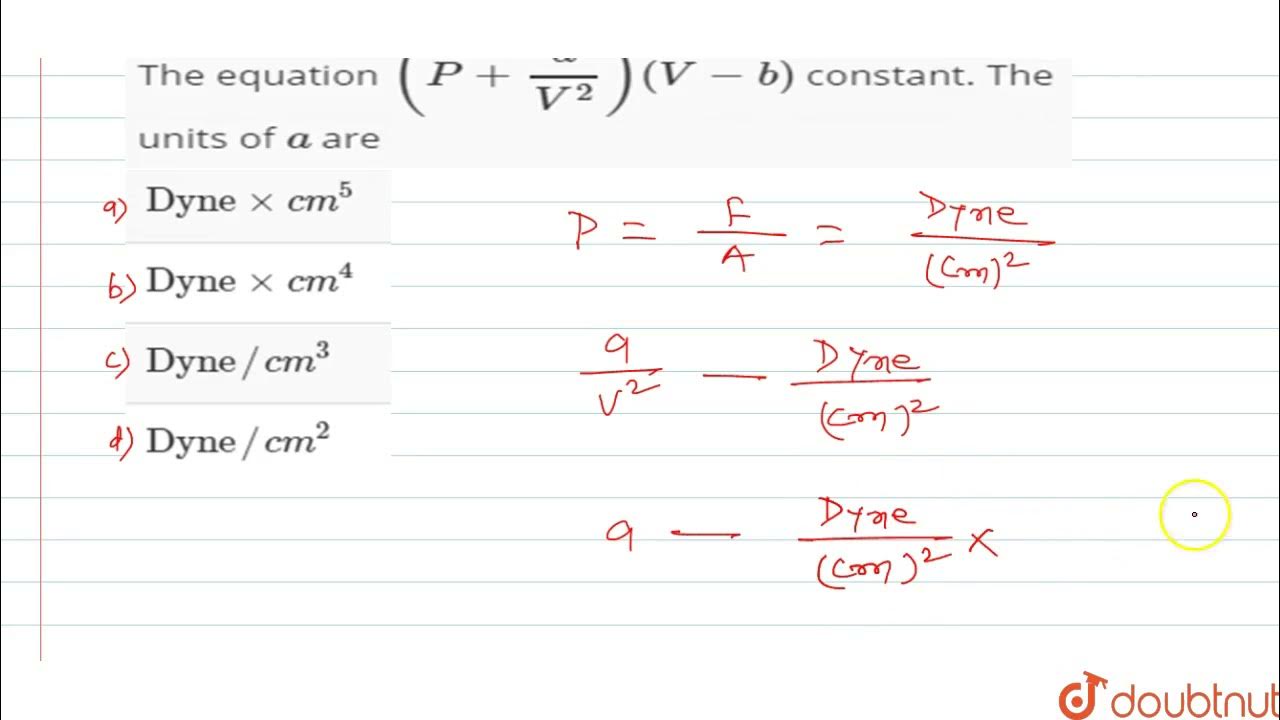 The equation (P + a/V²)(V − b) constant. The
units of a are
a) Dyne × cm⁵
b) Dyne × cm⁴
c) Dyne / cm³
d) Dyne / cm²
P = F/A = Dyne/(cm)²
a/V² — Dyne/(cm)²
a — Dyne/(cm)² ×
doubtnut